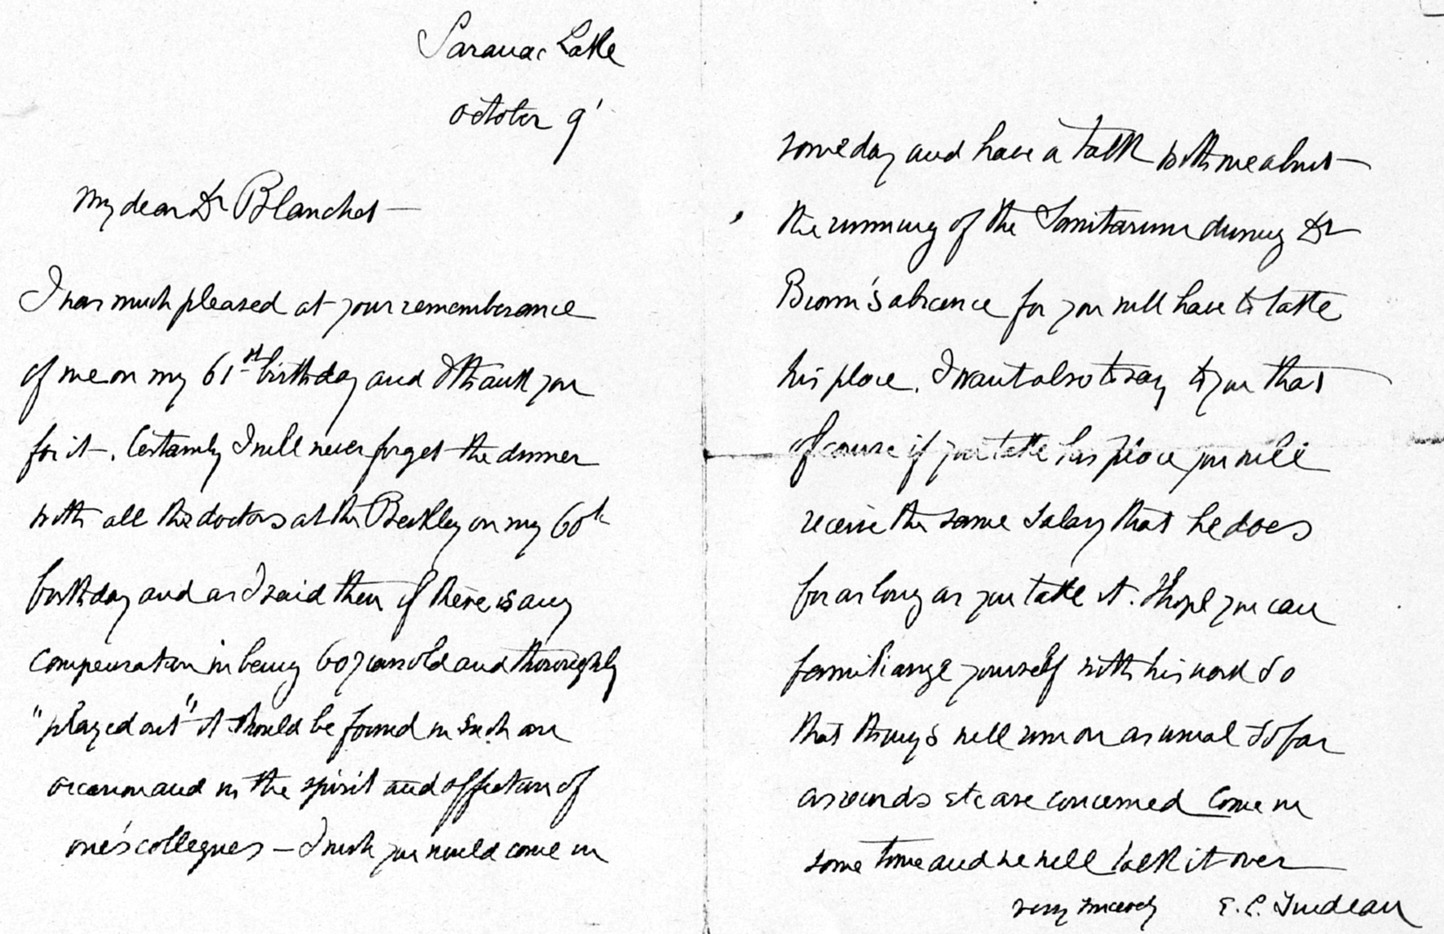 Saranac Lake
October 9'
My dear Dr Blanchet —
I was much pleased at your rememberance
of me on my 61st birthday and I thank you
for it —. Certainly I will never forget the dinner
with all the doctors at the Berkley on my 60th
birthday and as I said then if there is any
compensation in being 60 years old and thoroughly
"played out" it should be found in such an
occasion and in the spirit and affection of
one's collegues — I wish you would come in
some day and have a talk with me about
the running of the Sanitarium during Dr
Brown's absence for you will have to take
his place. I want also to say to you that
of course if you take his place you will
receive the same salary that he does
for as long as you take it. I hope you can
familiarize yourself with his work so
that things will run on as usual so far
as records etc are concerned come in
some time and we will talk it over
very sincerely E. L. Trudeau